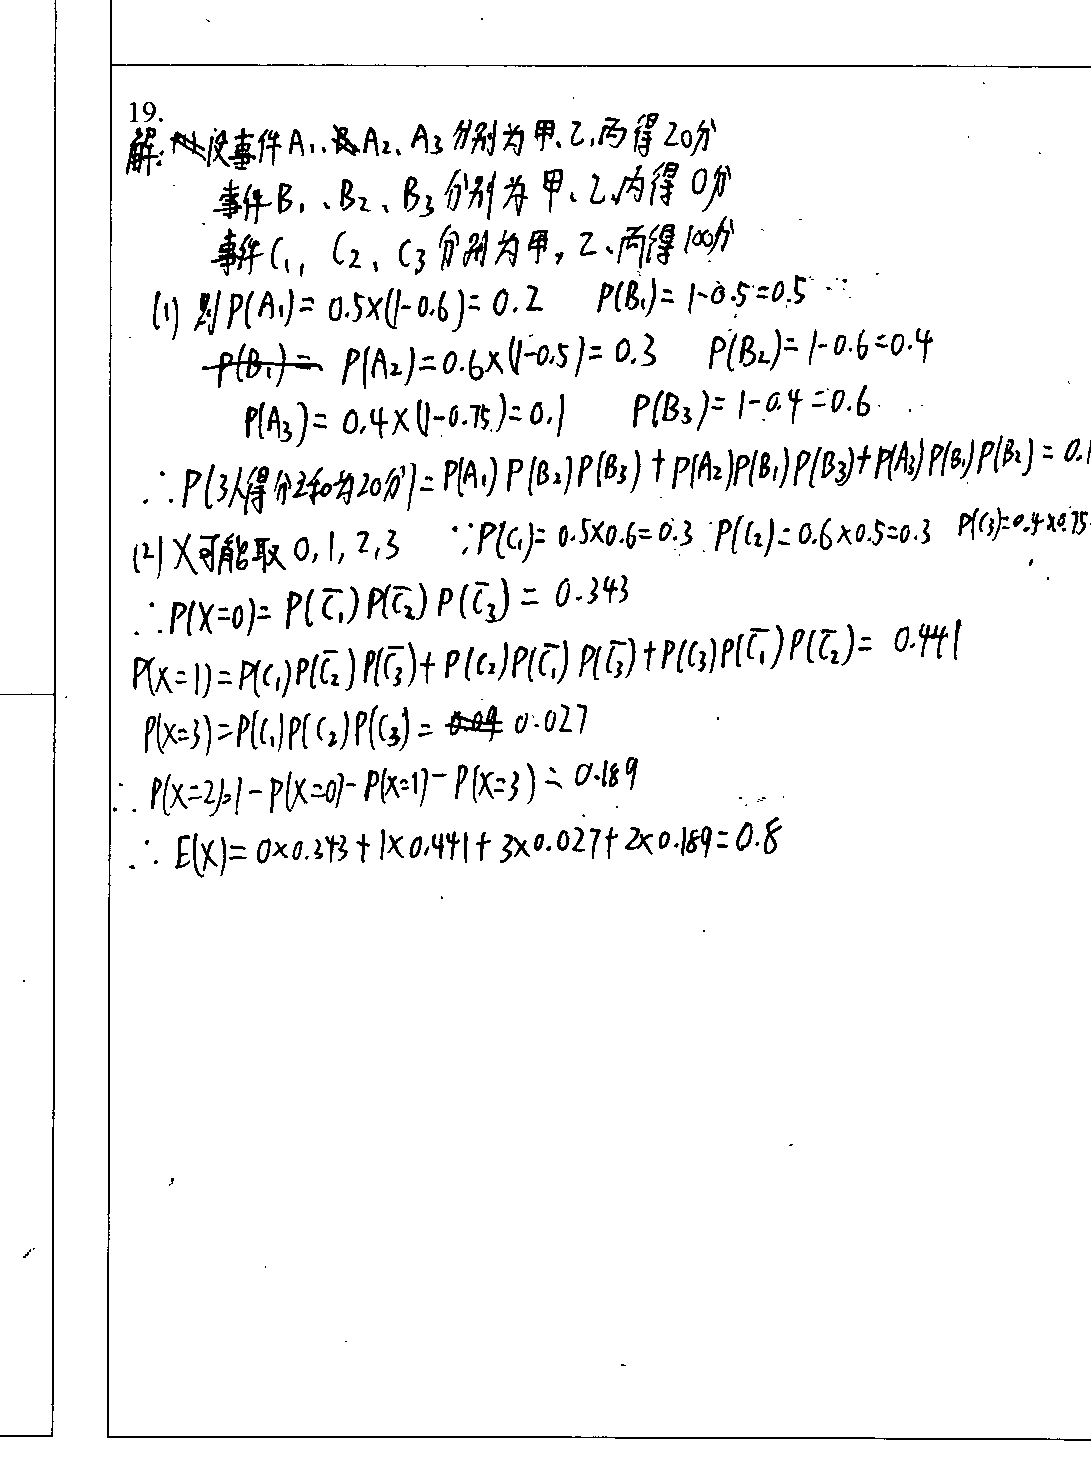 19.
解: 设事件A₁、A₂、A₃分别为甲、乙、丙得20分
事件B₁、B₂、B₃分别为甲、乙、丙得0分
事件C₁, C₂、C₃分别为甲,乙、丙得100分
(1) 则P(A₁)= 0.5×(1-0.6)= 0.2 P(B₁)= 1-0.5=0.5
P(B₁)= P(A₂)=0.6×(1-0.5)= 0.3 P(B₂)= 1-0.6=0.4
P(A₃)= 0.4×(1-0.75)=0.1 P(B₃)= 1-0.4=0.6
∴P(3人得分之和为20分)=P(A₁)P(B₂)P(B₃)+P(A₂)P(B₁)P(B₃)+P(A₃)P(B₁)P(B₂)= 0.1
(2) X可能取0, 1, 2, 3 ∵P(C₁)= 0.5×0.6=0.3 P(C₂)=0.6×0.5=0.3 P(C₃)=0.4×0.75
∴P(X=0)= P(C̅₁)P(C̅₂)P(C̅₃)= 0.343
P(X=1)=P(C₁)P(C̅₂)P(C̅₃)+P(C₂)P(C̅₁)P(C̅₃)+P(C₃)P(C̅₁)P(C̅₂)= 0.441
P(X=3)=P(C₁)P(C₂)P(C₃)= 0.027
∴ P(X=2)=1-P(X=0)-P(X=1)-P(X=3)=0.189
∴ E(X)=0×0.343+1×0.441+3×0.027+2×0.189=0.8